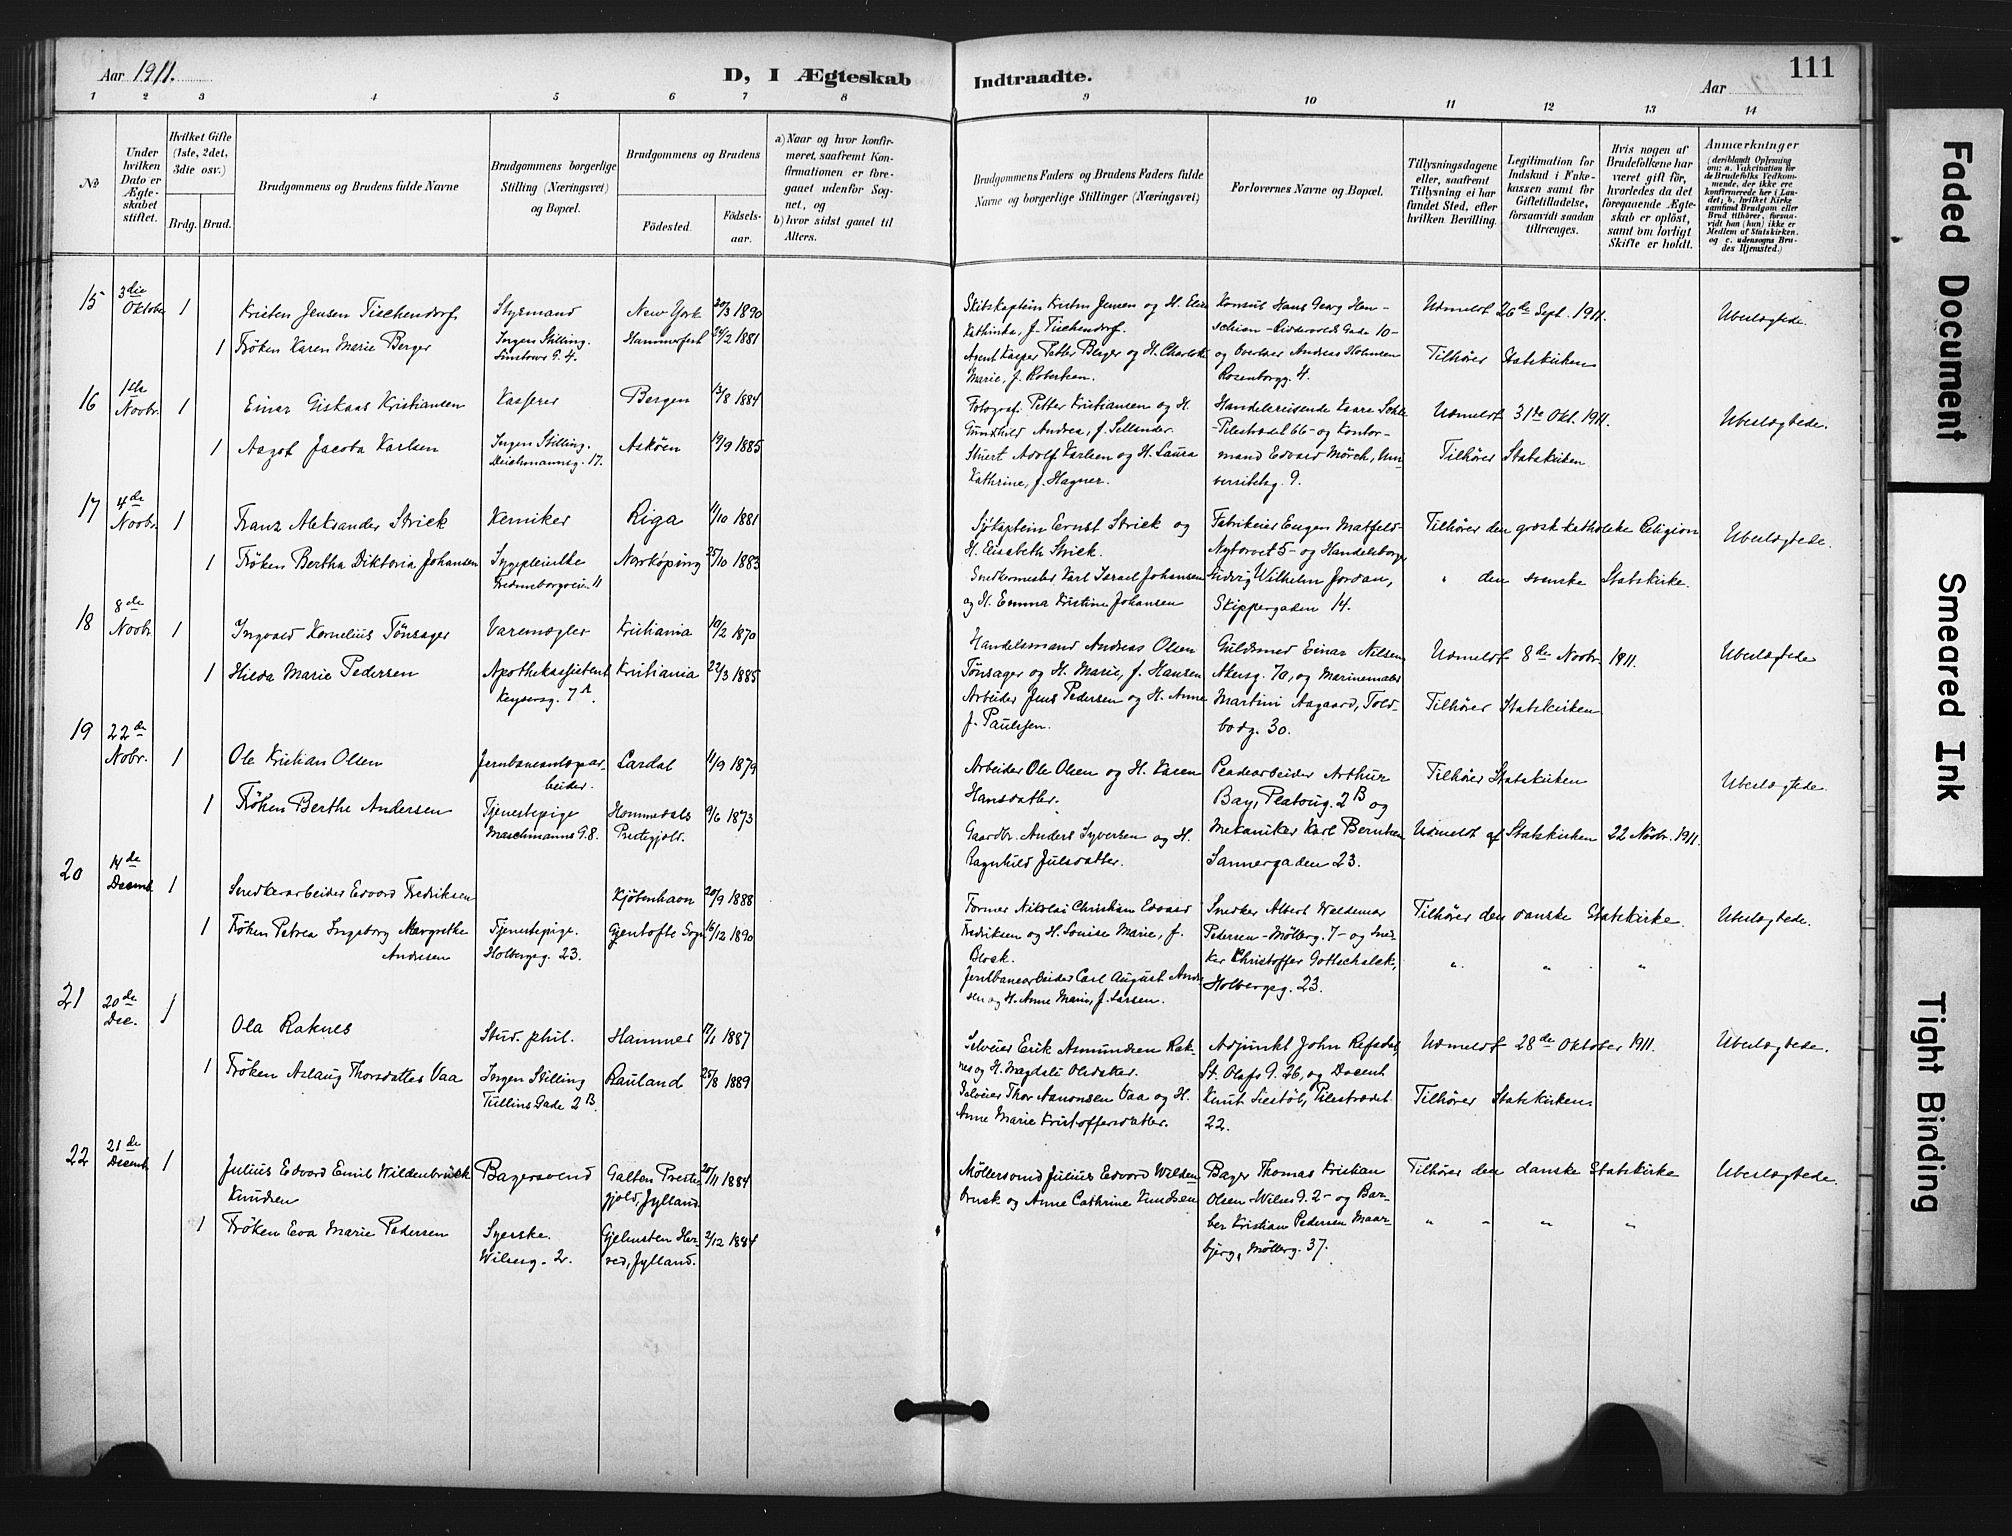 Aar 1911.
D, I Ægteskab
Indtraadte.
Aar
111
1 2 3 4 5 6 7 8 9 10 11 12 13 14
№
Under hvilken Dato er Ægteskabet stiftet.
Hvilket Gifte (1ste, 2det, 3die osv.)
Brdg. Brud.
Brudgommens og Brudens fulde Navne
Brudgommens borgerlige Stilling (Næringsvei) og Bopæl.
Brudgommens og Brudens
Fødested.
Fødselsaar.
a) Naar og hvor konfirmeret, saafremt Konfirmationen er foregaaet udenfor Sognet, og
b) hvor sidst gaaet til Alters.
Brudgommens Faders og Brudens Faders fulde Navne og borgerlige Stillinger (Næringsvei)
Forlovernes Navne og Bopæl.
Tillysningsdagene eller, saafremt Tillysning ei har fundet Sted, efter hvilken Bevilling.
Legitimation for Indskud i Enkekassen samt for Giftetilladelse, forsaavidt saadan tiltrænges.
Hvis nogen af Brudefolkene har været gift før, hvorledes da det foregaaende Ægteskab er opløst, samt om lovligt Skifte er holdt.
Anmærkninger
15 3die Oktober 1 Kristen Jensen Tischendorf Styrmand New York 20/3 1890
1 Frøken Karen Marie Berger Ingen Stilling. G. 4. Hammerfest 24/2 1881
Skibskaptein Kristen Jensen og H. Elise
Kathinka, f. Tischendorf.
Agent Kasper Petter Berger og H. Charlotte
Marie, f. Robertsen.
Konsul Hans Georg Hen-
schien - Riddervolds Gade 10 -
og Overlærer Andreas Holmsen
Rosenborgg. 4.
Udmeldt 26de Sept. 1911.
Tilhører Statskirken
Ubeslægtede.
16 1ste Novbr. 1 Einar Giskaas Kristiansen Kasserer Bergen 13/8 1884
1 Aagot Jacoba Karlsen Ingen Stilling. Deichmannsg. 17. Askøen 19/9 1885
Fotograf Petter Kristiansen og H.
Gunhild Andrea, f. Sellander.
Stuert Adolf Karlsen og H. Laura
Kathrine, f. Hagner.
Handelsreisende Kaare
- Pilestrædet 66 - og Kontor-
mand Edvard Mörch, Uni-
versitetsg. 9.
Udmeldt 31te Okt. 1911.
Tilhører Statskirken
Ubeslægtede.
17 4de Novbr. 1 Franz Aleksander Strick Kemiker Riga 11/10 1881
1 Frøken Bertha Viktoria Johansen Sygepleierske Fredensborgvein 11 Norrköping 25/10 1883
Sjökaptein Ernst Strick og
H. Elisabeth Strick.
Snedkermester Karl Israel Johansen
og H. Emma Kristine Johansen
Fabrikeier Eugen Matfeld-
Nytorvet 5 - og Handelsborger
Ludvig Wilhelm Jordan,
Skippergaden 14.
Tilhører den græsk katholske Religion
" den svenske Statskirke.
Ubeslægtede.
18 8de Novbr. 1 Ingvald Kornelius Tönsager Varemægler Kristiania 10/2 1870
1 Hilda Marie Pedersen Apothekassistent Keysersg. 7A. Kristiania 22/3 1885
Handelsmand Andreas Olsen
Tönsager og H. Marie, f. Hansen
Arbeider Jens Pedersen og H. Anne
f. Paulsen.
Guldsmed Einar Nilsen,
Akersg. 70, og Marinemaler
Martin Aagaard, Told-
bodg. 30.
Udmeldt 8de Novbr. 1911.
Tilhører Statskirken
Ubeslægtede
19 22de Nobr. 1 Ole Kristian Olsen Jernbaneanlægsar-
beider. Lardal 11/9 1879
1 Frøken Berthe Andersen Tjenestepige Maschmanns G. 8. Hommedals Prestegjeld. 9/6 1873
Arbeider Ole Olsen og H. Karen
Hansdatter.
Gaardbr. Anders Syversen og H.
Ragnhild Julsdatter.
Pladearbeider Arthur
Bay, Platoug. 2B og
Mekaniker Karl Berntsen
Sannergaden 23.
Tilhører Statskirken
Udmeldt af Statskirken 22 Novbr. 1911.
Ubeslægtede.
20 14de Decemb. 1 Snedkerarbeider Edvard Fredriksen Kjöbenhavn 20/9 1888
1 Frøken Petrea Ingeborg Margrethe
Andersen Tjenestepige. Holbergsg. 23. Gjentofte Sogn 16/12 1890
Former Nikolai Christian Edvard
Fredriksen og H. Louise Marie, f.
Block.
Jernbanearbeider Carl August Ander-
sen og H. Anne Marie, f. Larsen.
Snedker Albert Waldemar
Pedersen - Møllerg. 7 - og Sned-
ker Christoffer Gottschalck,
Holbergsg. 23.
Tilhører den danske Statskirke.
" " "
Ubeslægtede.
21 20de Dec. 1 Ola Raknes Stud. phil. Hammer 17/1 1887
1 Frøken Aslaug Thorsdatter Vaa Ingen Stilling Tullins Gade 2B. Rauland 25/8 1889
Selveier Erik Asmundsen Rak-
nes og H. Magdali Olsdatter.
Selveier Thor Aanonsen Vaa og H.
Anne Marie Kristoffersdatter.
Adjunkt John Refsdal,
St. Olafs G. 26, og Docent
Knut Liestöl, Pilestrædet
22.
Udmeldt 28de Oktober 1911.
Tilhører Statskirken.
Ubeslægtede.
22 21de Decemb. 1 Julius Edvard Emil Wildenbrück
Knudsen Bagersvend Galten Preste-
gjeld, Jylland 20/11 1884
1 Frøken Eva Marie Pedersen Syerske. Wilsesg. 2. Gjelmsten Her-
red, Jylland. 2/12 1884
Møllersvend Julius Edvard Wilden-
brusk og Anne Cathrine Knudsen
Bager Thomas Kristian
Olsen - Wilses G. 2 - og Bar-
ber Kristian Pedersen Maar-
bjerg, Møllerg. 37.
Tilhører den danske Statskirke
" " " "
Ubeslægtede.
Faded Document
Smeared Ink
Tight Binding